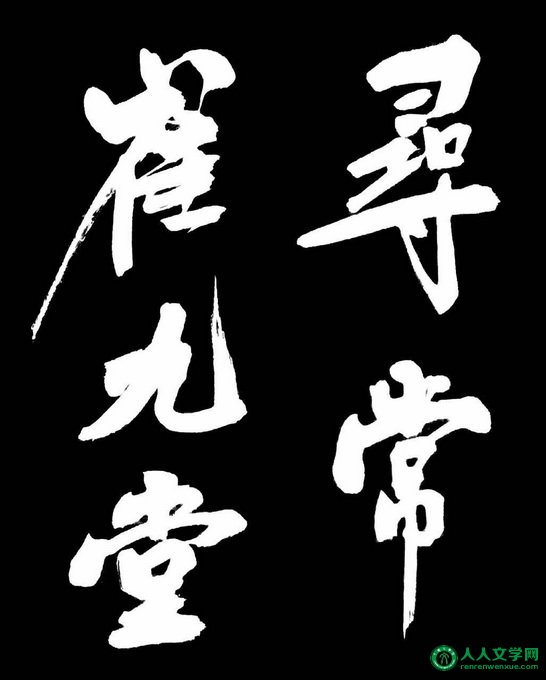 尋常
崔九堂
人人文学网
renrenwenxue.com